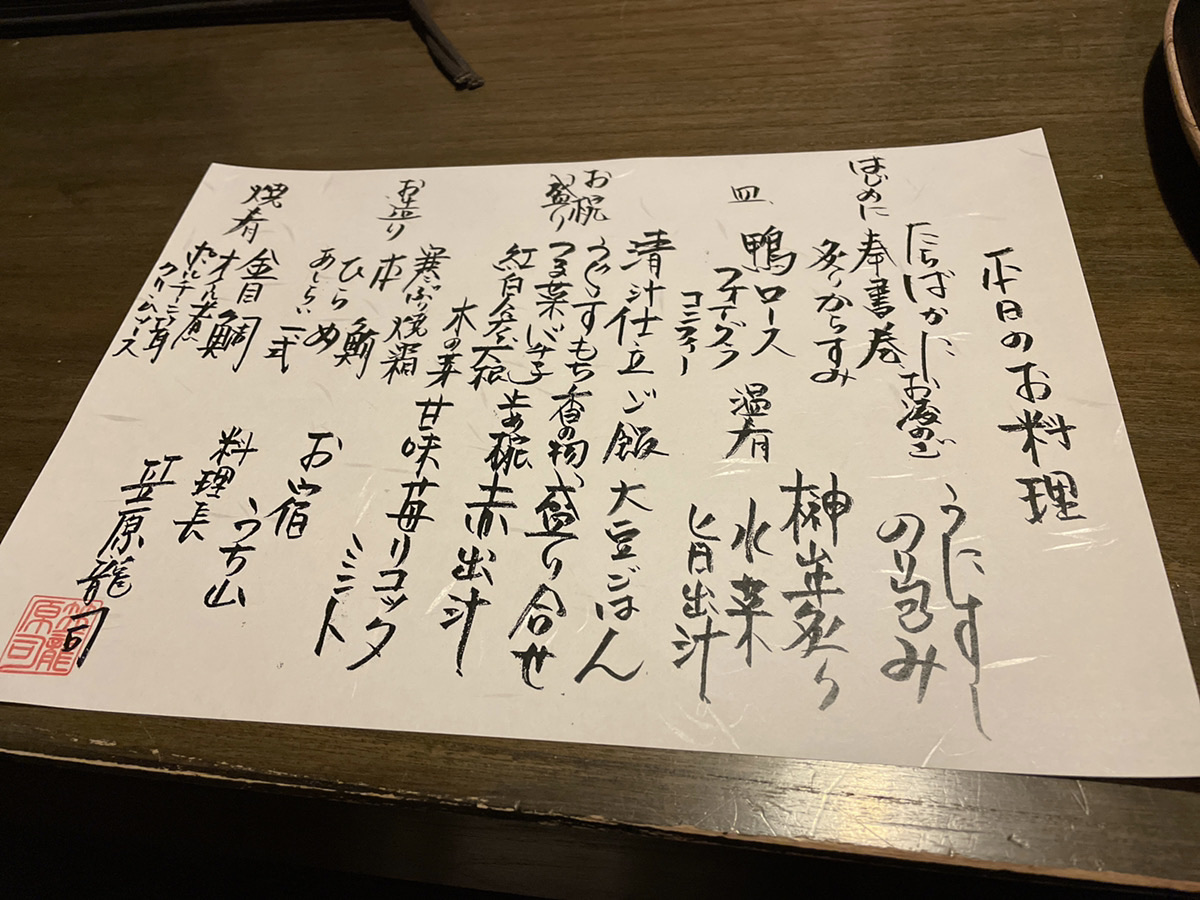 本日のお料理
はじめに
たらばかに
奉書巻
炙りからすみ
皿
鴨ロース
フォアグラ
コニティー
お椀
清汁仕立
うぐいすもち
つま菜
紅白
大根
木の芽
お造り
寒ぶり焼霜
本鮪
ひらめ
あしらい一式
焼肴
金目鯛
オイル煮
クリームソース
お凌ぎ
うにすし
のり包み
温肴
榊山牛炙り
水菜
旨出汁
ご飯
大豆ごはん
香の物
盛り合せ
止椀
赤出汁
甘味
苺リコッタ
ミント
お宿
うち山
料理長
笠原龍司